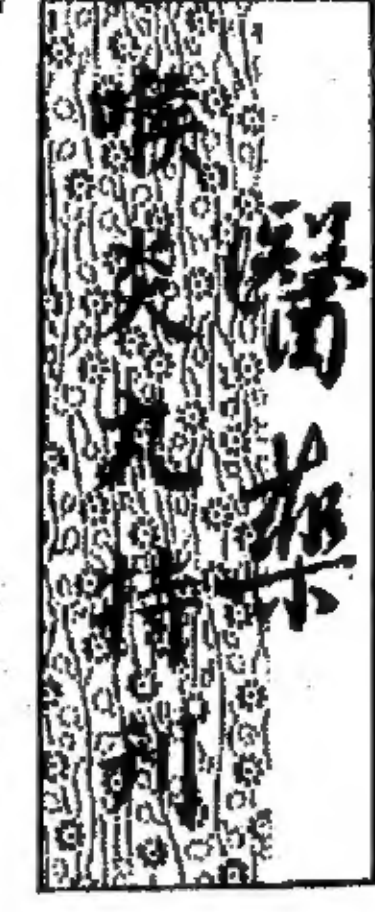 醫藥
喉炎丸特刊